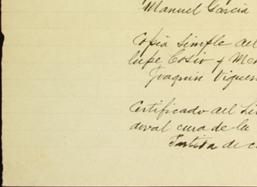 Manuel Garcia
Copia Simple del
lupe Cosio y Men
Joaquin Viguen
Certificado del Li
doval cura de la
Partida de c